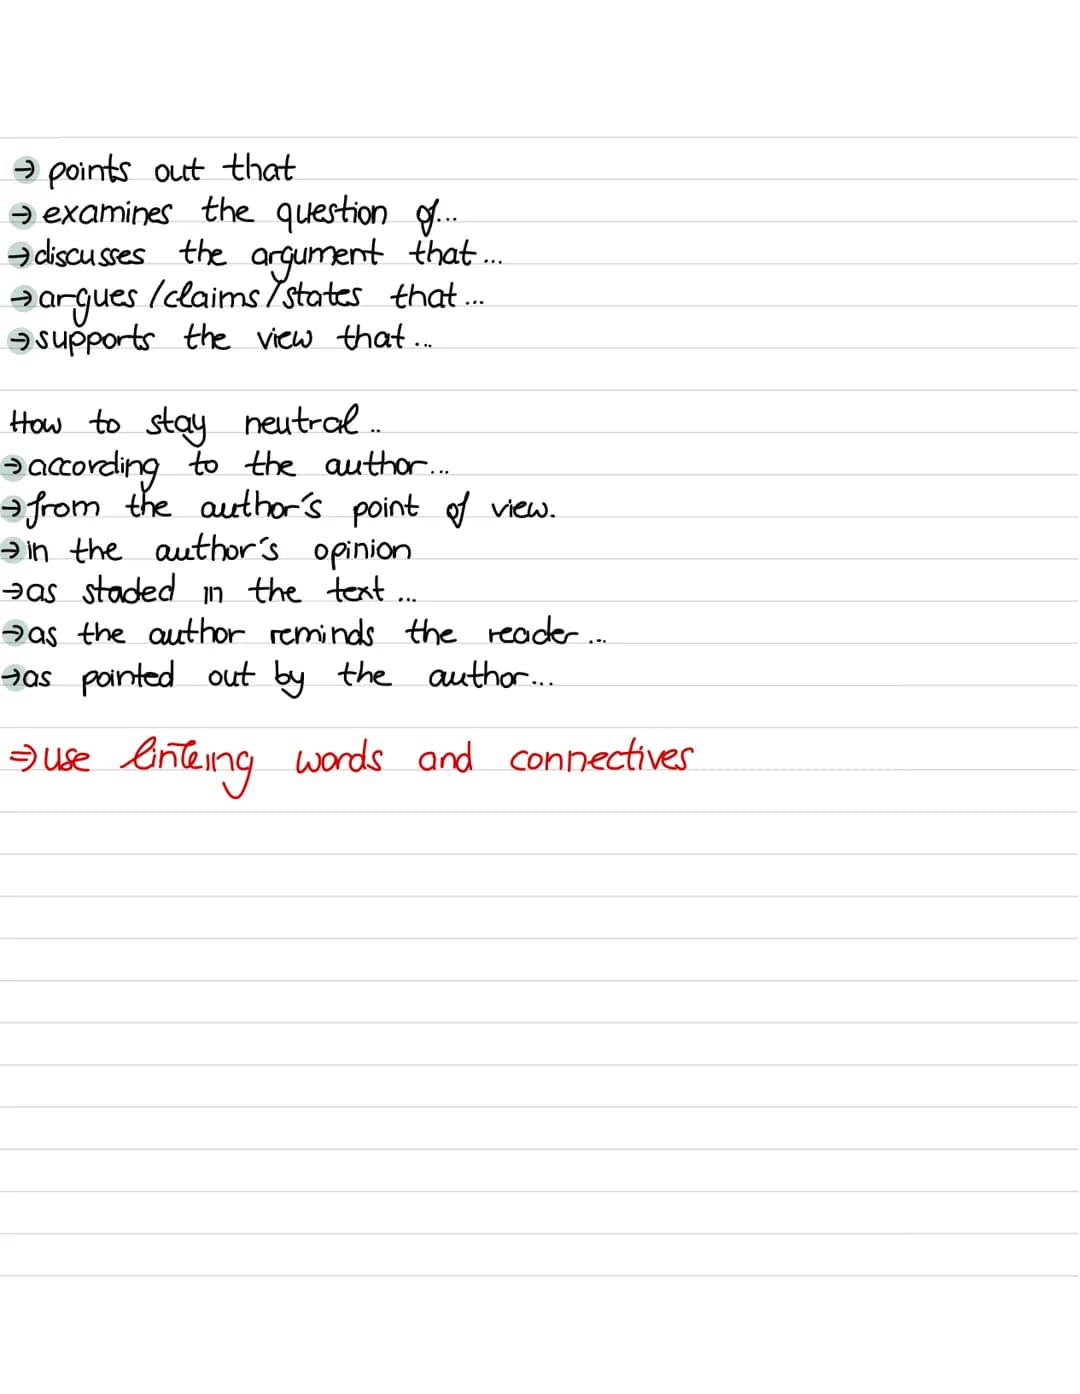 → points out that
→ examines the question of...
→ discusses the argument that...
→ argues/claims/states that...
→ supports the view that...
How to stay neutral..
→ according to the author...
→ from the author's point of view.
→ in the author's opinion
→ as staded in the text...
→ as the author reminds the reader...
→ as pointed out by the author...
⇒ use words and connectives